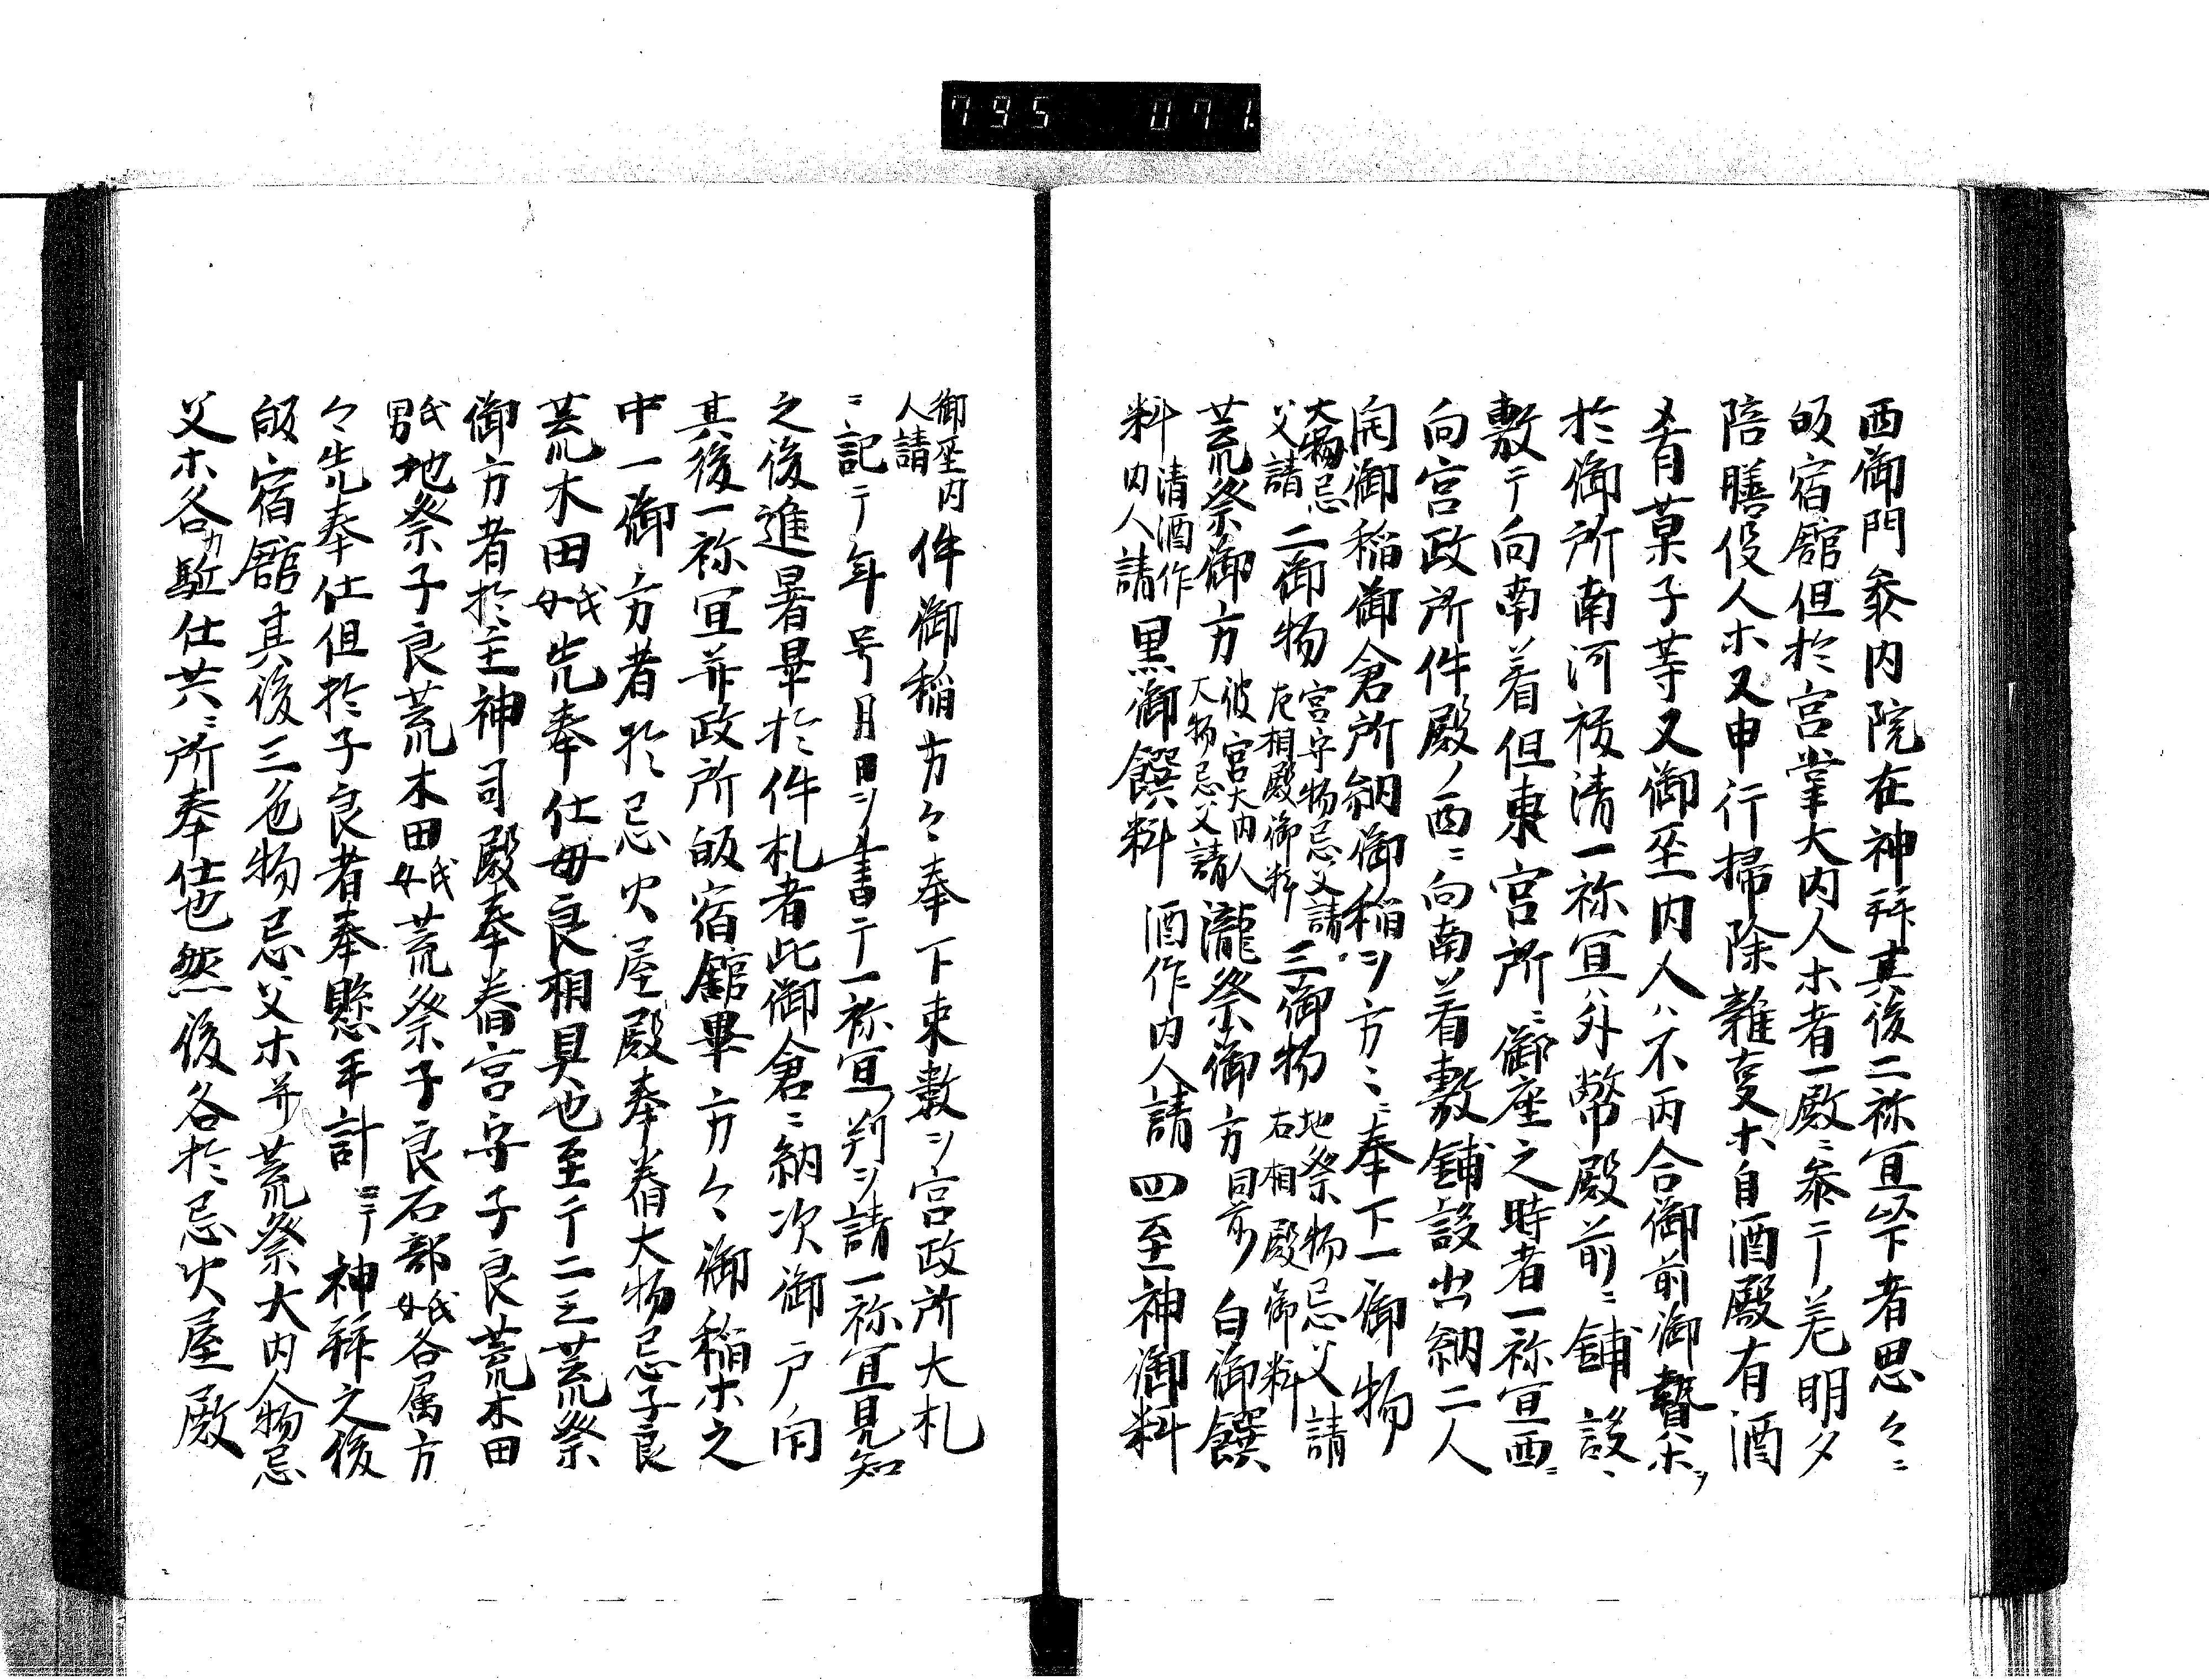 795 071.
西御門叅内院在神拜其後二祢宜以下者思々ニ
皈宿舘但於宮掌大内人ホ者一殿ニ叅テ羌明夕
陪膳役人ホ又申行掃除雜事ホ自酒殿有酒
肴菓子等又御巫内人ハ不丙合御前御贄ホヲ
於御所南河祓清一祢冝ハ外幣殿前ニ鋪設ヽ
敷テ向南着但東宮所ニ御座之時者一祢宜西ニ
向宮政所件殿ノ西ニ向南着敷鋪設出納二人
開御稲御倉所納御稲ヲ方ニ奉下一御物
大物忌父請二御物宮守物忌父請左相殿御料三御物地祭物忌父請右相殿御料
荒祭御方彼宮大内人大物忌父請瀧祭御方同前白御饌
料清酒作内人請黒御饌料酒作内人請四至神御料
御巫内人請件御稲方々奉下束數ヲ宮政所大札
ニ記テ年号月日ヲ書テ一祢宜判ヲ請一祢宜見知
之後進署畢於件札者此御倉ニ納次御戸開
其後一祢宜并政所皈宿舘畢方々御稲ホ之
中一御方者於忌火屋殿奉舂大物忌子良
荒木田氏女先奉仕母良相具也至テ二三荒祭
御方者於主神司殿奉舂宮守子良荒木田
氏男地祭子良荒木田氏女荒祭子良石部氏女各属方
々先奉仕但於子良者奉懸手計ニテ神拜之後
皈宿舘其後三色物忌父ホ并荒祭大内人物忌
父ホ各カ駈仕共ニ所奉仕也然後各於忌火屋殿